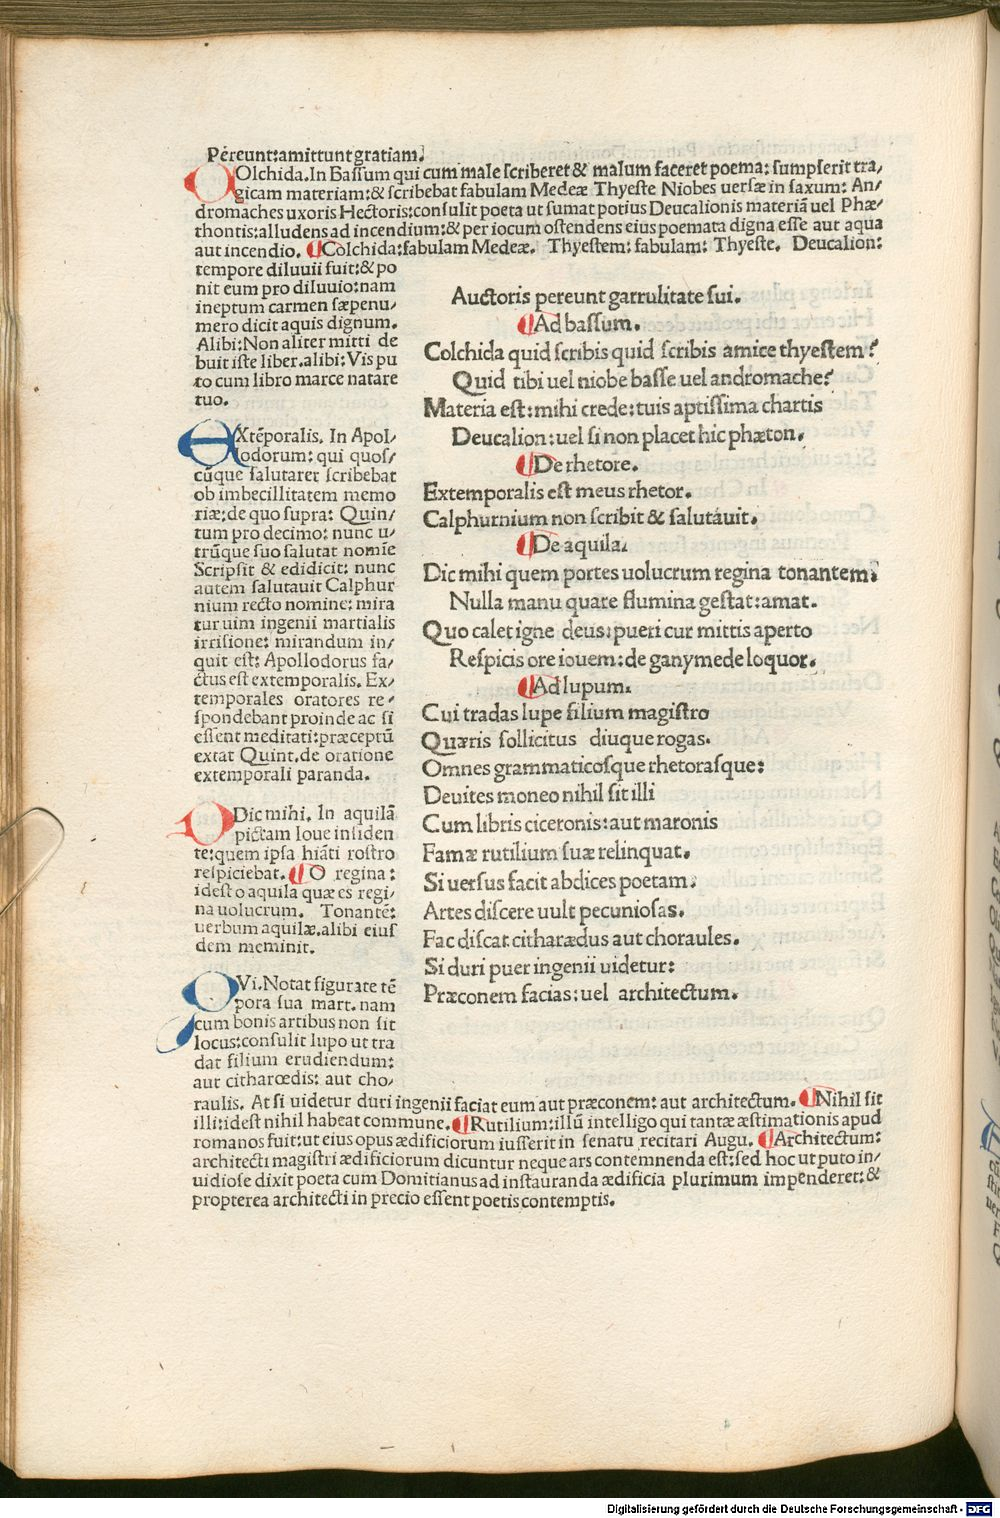 Pereunt:amittunt gratiam.
COlchida.In Bassum qui cum male scriberet & malum faceret poema: sumpserit tra/
gicam materiam:& scribebat fabulam Medeæ Thyeste Niobes uersæ in saxum: An/
dromaches uxoris Hectoris:consulit poeta ut sumat potius Deucalionis materiã uel Phæ/
thontis:alludens ad incendium:& per iocum ostendens eius poemata digna esse aut aqua
aut incendio. ¶Colchida:fabulam Medeæ. Thyestem: fabulam: Thyeste. Deucalion:
tempore diluuii fuit:& po
nit eum pro diluuio:nam
ineptum carmen sæpenu/
mero dicit aquis dignum.
Alibi:Non aliter mitti de
buit iste liber.alibi:Vis pu
to cum libro marce natare
tuo.
EXtẽporalis. In Apol/
lodorum: qui quos/
cũque salutaret scribebat
ob imbecillitatem memo
riæ:de quo supra: Quin/
tum pro decimo: nunc u/
trũque suo salutat nomĩe
Scripsit & edidicit: nunc
autem salutauit Calphur
nium recto nomine: mira
tur uim ingenii martialis
irrisione: mirandum in/
quit est: Apollodorus fa/
ctus est extemporalis. Ex/
temporales oratores re/
spondebant proinde ac si
essent meditati:præceptũ
extat Quint.de oratione
extemporali paranda.
DDic mihi. In aquilã
pictam Ioue insiden
te:quem ipsa hiãti rostro
respiciebat. ¶O regina:
idest o aquila quæ es regi/
na uolucrum. Tonantẽ:
uerbum aquilæ.alibi eius
dem meminit.
QVi. Notat figurate tẽ
pora sua mart. nam
cum bonis artibus non sit
locus:consulit lupo ut tra
dat filium erudiendum:
aut citharœdis: aut cho/
raulis. At si uidetur duri ingenii faciat eum aut præconem: aut architectum. ¶Nihil sit
illi:idest nihil habeat commune. ¶Rutilium:illũ intelligo qui tantæ æstimationis apud
romanos fuit:ut eius opus ædificiorum iusserit in senatu recitari Augu. ¶Architectum:
architecti magistri ædificiorum dicuntur neque ars contemnenda est:sed hoc ut puto in/
uidiose dixit poeta cum Domitianus ad instauranda ædificia plurimum impenderet:&
propterea architecti in precio essent poetis contemptis.
Auctoris pereunt garrulitate sui.
¶Ad bassum.
Colchida quid scribis quid scribis amice thyestem?
Quid tibi uel niobe basse uel andromache?
Materia est:mihi crede:tuis aptissima chartis
Deucalion:uel si non placet hic phæton.
¶De rhetore.
Extemporalis est meus rhetor.
Calphurnium non scribit & salutauit.
¶De aquila.
Dic mihi quem portes uolucrum regina tonantem?
Nulla manu quare flumina gestat:amat.
Quo calet igne deus:pueri cur mittis aperto
Respicis ore iouem:de ganymede loquor.
¶Ad lupum.
Cui tradas lupe filium magistro
Quæris sollicitus diuque rogas.
Omnes grammaticosque rhetorasque:
Deuites moneo nihil sit illi
Cum libris ciceronis:aut maronis
Famæ rutilium suæ relinquat.
Si uersus facit abdices poetam:
Artes discere uult pecuniosas.
Fac discat citharædus aut choraules.
Si duri puer ingenii uidetur:
Præconem facias:uel architectum.
Digitalisierung gefördert durch die Deutsche Forschungsgemeinschaft - DFG